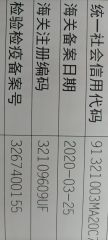 统一社会信用代码 91321003MA20C
海关备案日期 2020-03-25
海关注册编码 32109609UF
检验检疫备案号 3267400155